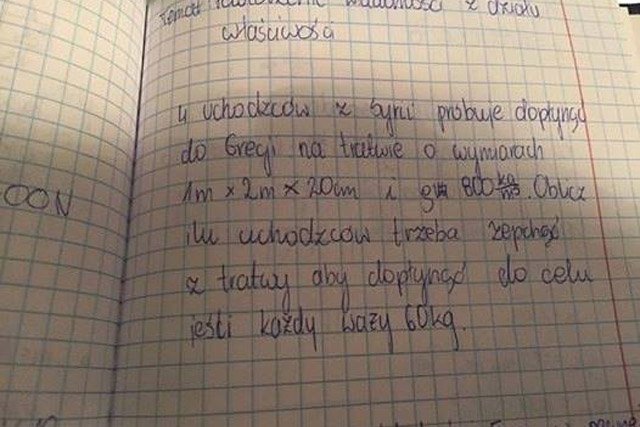 Temat z działu
właściwości
4 uchodźców z Syrii próbuje dopłynąć
do Grecji na tratwie o wymiarach
1m × 2m × 20cm i 800 kg/m³. Oblicz
OON
ilu uchodźców trzeba zepchnąć
z tratwy aby dopłynąć do celu
jeśli każdy waży 60kg.